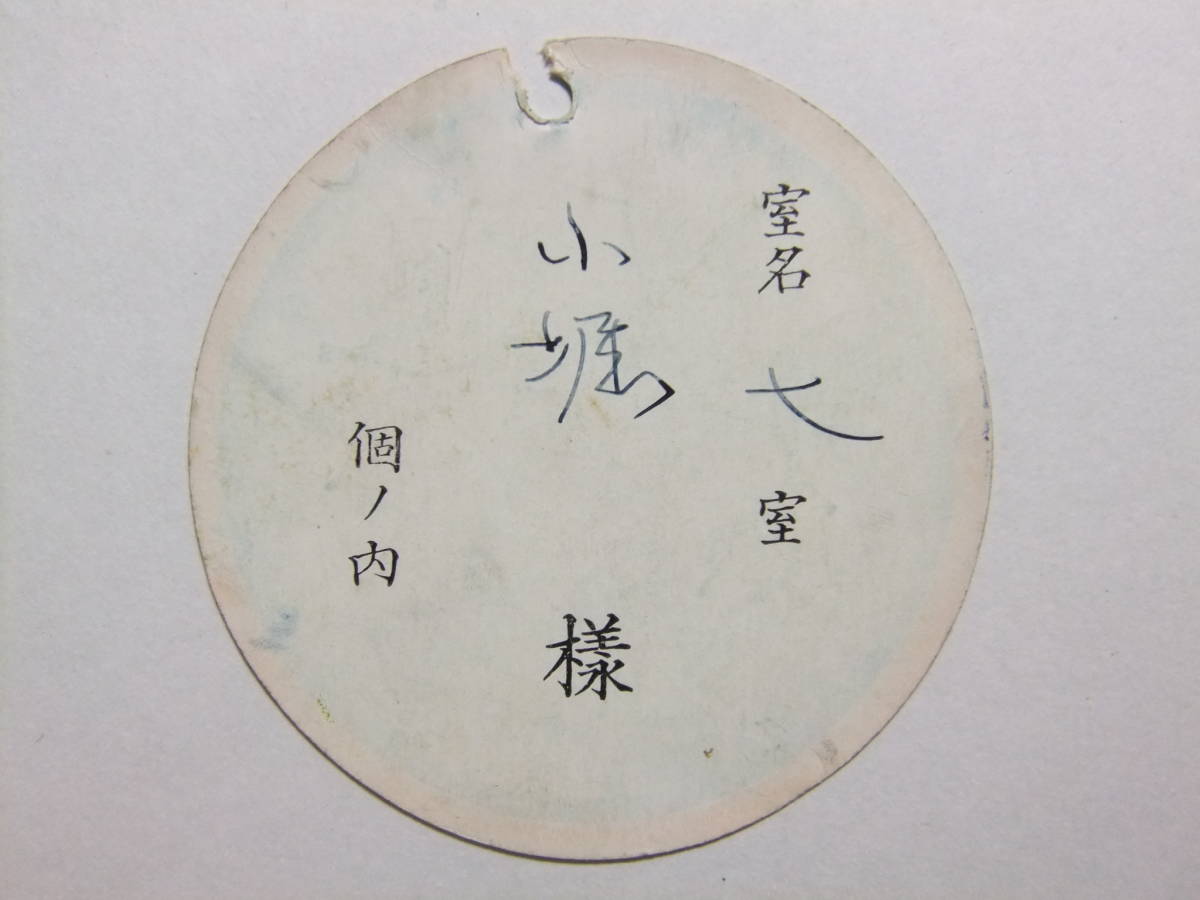 室名 七 室
小堀 樣
個ノ内